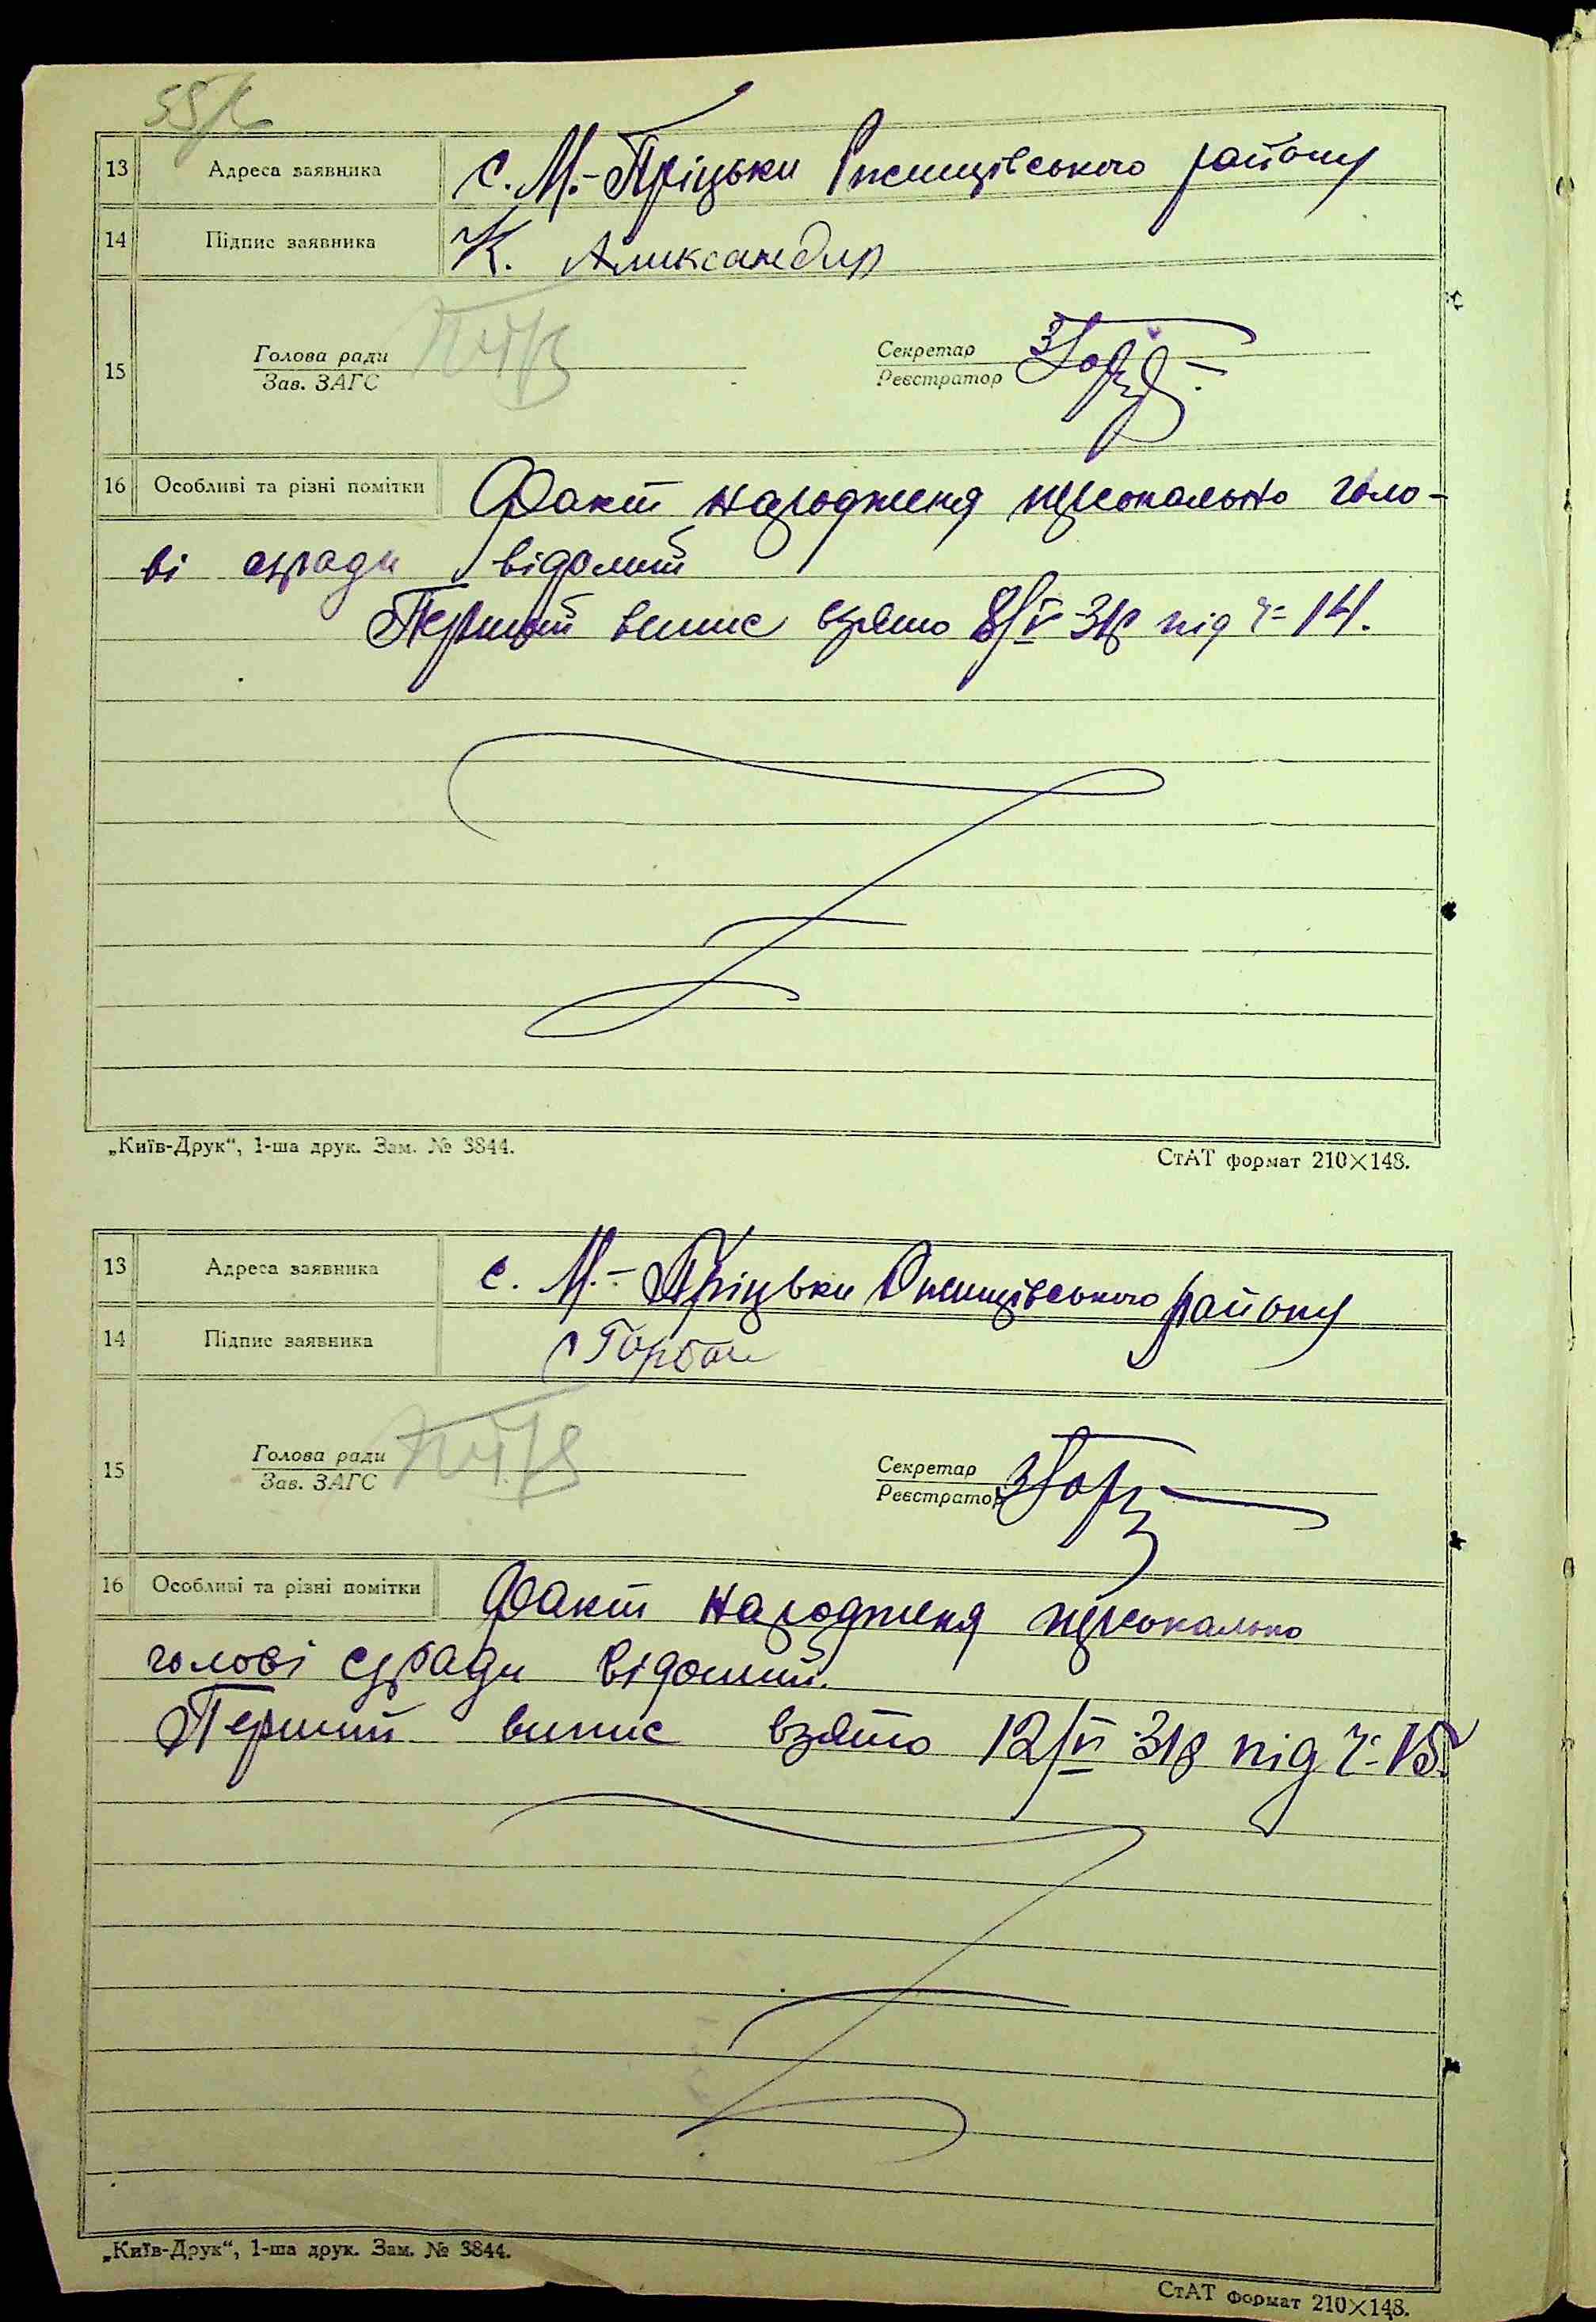 13 Адреса заявника с. М.-Пріцьки Ржищівського району
14 Підпис заявника К. Александир
15 Голова ради Секретар
Зав. ЗАГС Реєстратор
16 Особливі та різні помітки Факт народженя персонально голо-
ві с/ради відомий
Перший випис взято 8/VI 31р під ч= 14.
„Київ-Друк“, 1-ша друк. Зам. № 3844.
СтАТ формат 210×148.
13 Адреса заявника с. М.-Пріцьки Ржищівського району
14 Підпис заявника Горбач
15 Голова ради Секретар
Зав. ЗАГС Реєстратор
16 Особливі та різні помітки Факт народженя персонально
голові с/ради відомий.
Перший випис взято 12/VI 31р під ч= 15.
„Київ-Друк“, 1-ша друк. Зам. № 3844.
СтАТ формат 210×148.